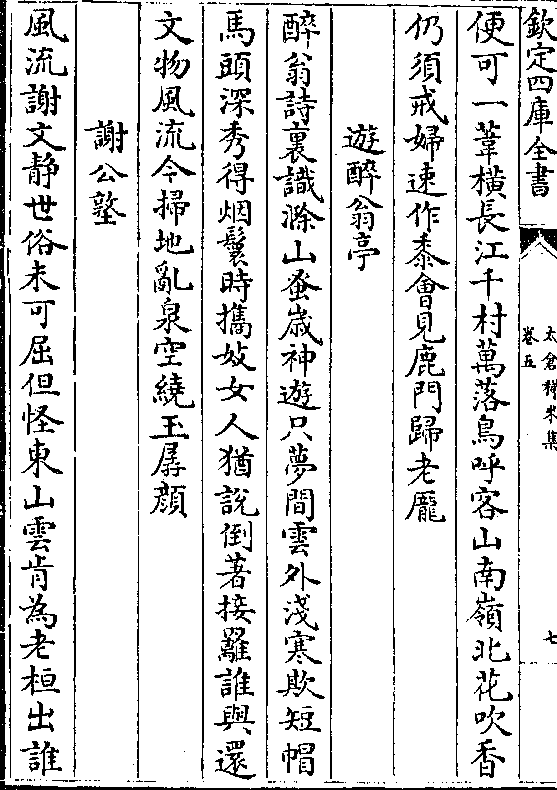 欽定四庫全書
太倉稊米集
卷五
七
便可一葦橫長江千村萬落鳥呼客山南嶺北花吹香
仍須戒婦速作黍會見鹿門歸老龎
遊醉翁亭
醉翁詩裏識滁山蚤歳神遊只夢間雲外淺寒欺短帽
馬頭深秀得烟鬟時攜妓女人猶說倒著接䍦誰與還
文物風流今掃地亂泉空繞玉孱顔
謝公墪
風流謝文靜世俗未可屈但怪東山雲肯為老桓出誰